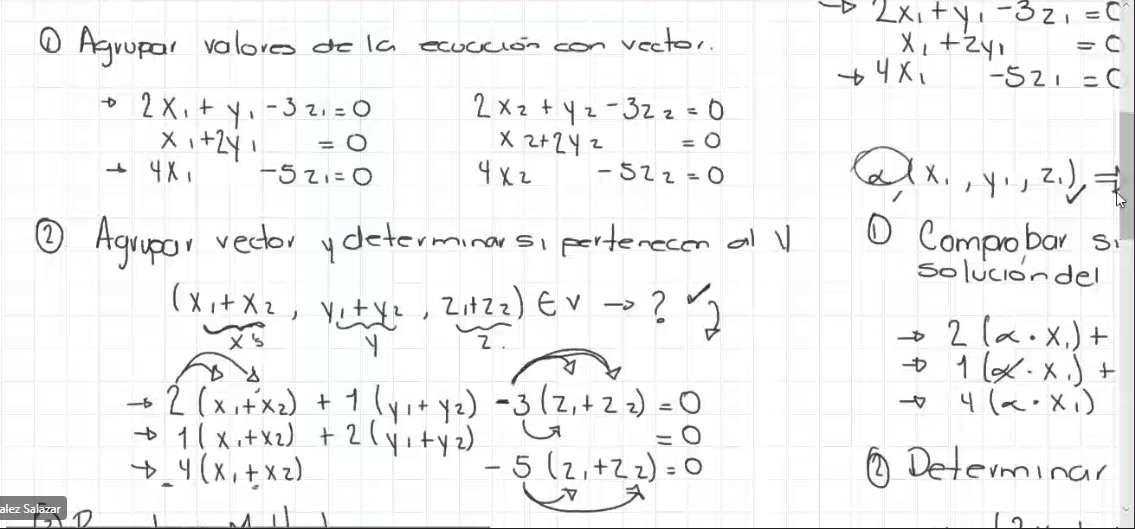 ① Agrupar valores de la ecuación con vector.
→ 2x₁ + y₁ - 3z₁ = 0
x₁ + 2y₁ = 0
→ 4x₁ - 5z₁ = 0
2x₂ + y₂ - 3z₂ = 0
x₂ + 2y₂ = 0
4x₂ - 5z₂ = 0
② Agrupar vector y determinar si pertenecen al V
(x₁ + x₂, y₁ + y₂, z₁ + z₂) ∈ V → ? ✓
x's y z.
→ 2(x₁ + x₂) + 1(y₁ + y₂) - 3(z₁ + z₂) = 0
→ 1(x₁ + x₂) + 2(y₁ + y₂) = 0
→ 4(x₁ + x₂) - 5(z₁ + z₂) = 0
alez Salazar
→ 2x₁ + y₁ - 3z₁ =
x₁ + 2y₁ =
→ 4x₁ - 5z₁ =
α(x₁, y₁, z₁) ✓ ⇒
① Comprobar si
solución del
→ 2(α · x₁) +
→ 1(α · x₁) +
→ 4(α · x₁)
② Determinar